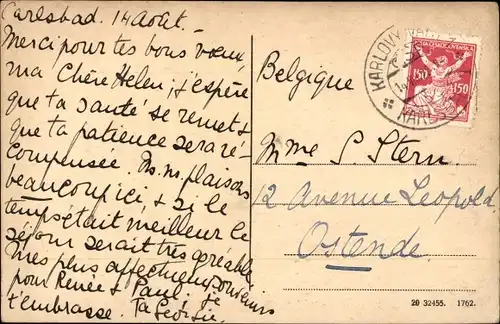 Carlsbad. 14 Août.
Merci pour tes bons vœux,
ma Chère Helen, j'espère
que ta santé se remet &
que ta patience sera ré-
compensée. Ns. ns. plaisons
beaucoup ici & si le
temps était meilleur le
séjour serait très agréable.
Mes plus affectueux souvenirs
pour Renée & Paul. Je
t'embrasse. Ta
Belgique
Mme S. Stern
12 Avenue Léopold
Ostende
KARLOVY VARY
ČESKOSLOVENSKÁ
150 150
20 32455. 1762.